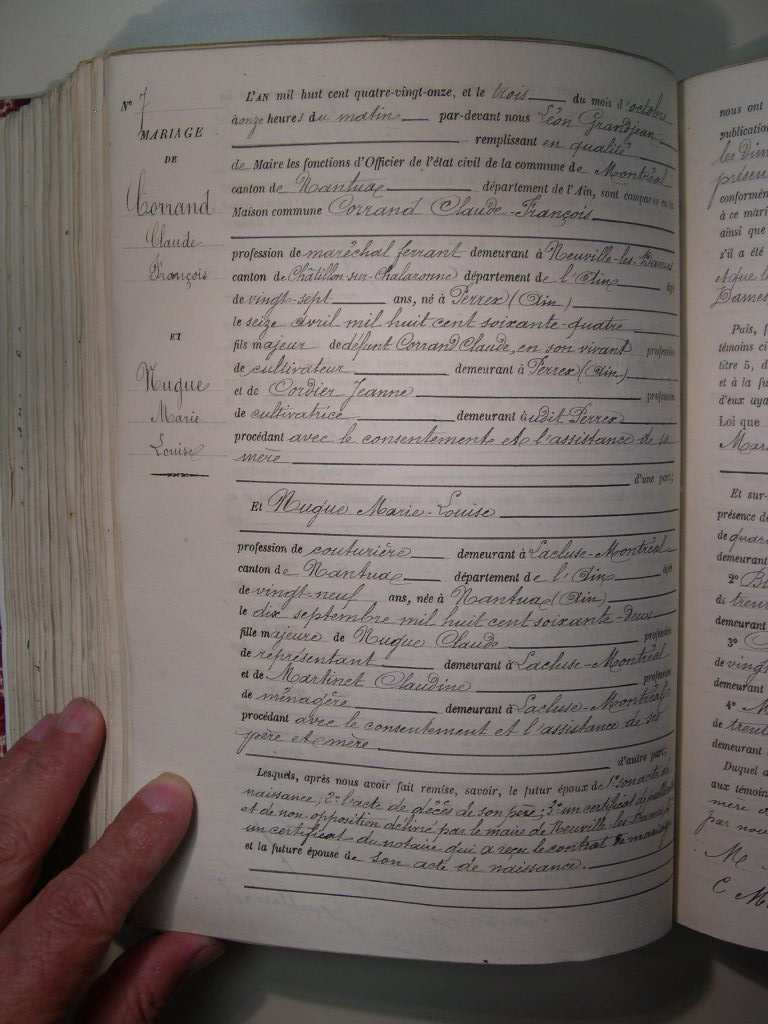 N° 7
MARIAGE
DE
Corrand
Claude
François
ET
Nugue
Marie
Louise
L'AN mil huit cent quatre-vingt-onze, et le trois du mois d'octobre
à onze heures du matin par-devant nous Léon Grandjean
remplissant en qualité
de Maire les fonctions d'Officier de l'état civil de la commune de Montréal
canton de Nantua département de l'Ain, sont comparus en la
Maison commune Corrand Claude-François
profession de maréchal ferrant demeurant à Neuville-les-Dames
canton de Châtillon-sur-Chalaronne département de l'Ain âgé
de vingt-sept ans, né à Perrex (Ain)
le seize avril mil huit cent soixante-quatre
fils majeur de défunt Corrand Claude, en son vivant profession
de cultivateur demeurant à Perrex (Ain)
et de Cordier Jeanne profession
de cultivatrice demeurant à udit Perrex
procédant avec le consentement et l'assistance de sa
mère
d'une part;
Et Nugue Marie-Louise
profession de couturière demeurant à Lacluse-Montréal
canton de Nantua département de l'Ain âgée
de vingt-neuf ans, née à Nantua (Ain)
le dix septembre mil huit cent soixante-deux
fille majeure de Nugue Claude profession
de représentant demeurant à Lacluse-Montréal
et de Martinet Claudine profession
de ménagère demeurant à Lacluse-Montréal
procédant avec le consentement et l'assistance de ses
père et mère
d'autre part;
Lesquels, après nous avoir fait remise, savoir, le futur époux de 1° son acte de
naissance; 2° l'acte de décès de son père; 3° un certificat de
et de non opposition délivré par le maire de Neuville les Dames
un certificat du notaire qui a reçu le contrat de mariage
et la future épouse de son acte de naissance.
nous ont
publication
les Dim
présen
conformém
à ce mari
ainsi que
s'il a été
et que l
Dames
Puis, f
témoins ci
titre 5, d
et à la fu
d'eux aya
Loi que
Mar
Et sur-
présence de
de quar
demeurant
2° B
de trent
demeurant
3°
de vingt
demeurant
4° M
de trent
demeurant
Duquel a
aux témoin
mère e
par nou
M
C M